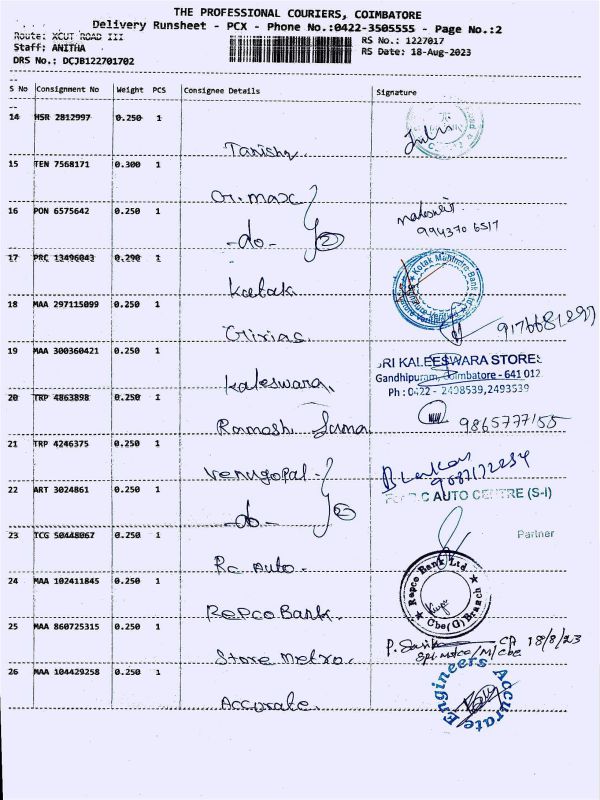 THE PROFESSIONAL COURIERS, COIMBATORE
Delivery Runsheet - PCX - Phone No.:0422-3505555 - Page No.:2
Route: XCUT ROAD III
RS No.: 1227017
Staff: ANITHA
RS Date: 18-Aug-2023
DRS No.: DCJB122701702
S No Consignment No Weight PCS Consignee Details Signature
14 HSR 2812997 0.250 1
Tanishq
15 TEN 7568171 0.300 1
G.max
16 PON 6575642 0.250 1
994370 6517
-do- 2
17 PRC 13496043 0.290 1
Kotak Mahindra Bank Ltd
Kotak
18 MAA 297115099 0.250 1
Girias
19 MAA 300360421 0.250 1
SRI KALEESWARA STORES
Gandhipuram, Coimbatore - 641 012
Kaleswara
Ph : 0422 - 2498539, 2493539
20 TRP 4863898 0.250 1
9865777155
Ramesh
21 TRP 4246375 0.250 1
Venugopal
22 ART 3024861 0.250 1
C AUTO CENTRE (S-I)
-do- 2
23 TCG 50448067 0.250 1
Partner
Rc Auto
24 MAA 102411845 0.250 1
Repco Bank Ltd.
Cbe(G) Branch
Repco Bank
25 MAA 860725315 0.250 1
18/8/23
Store Metro
26 MAA 104429258 0.250 1
Accurate Engineers
Accurate